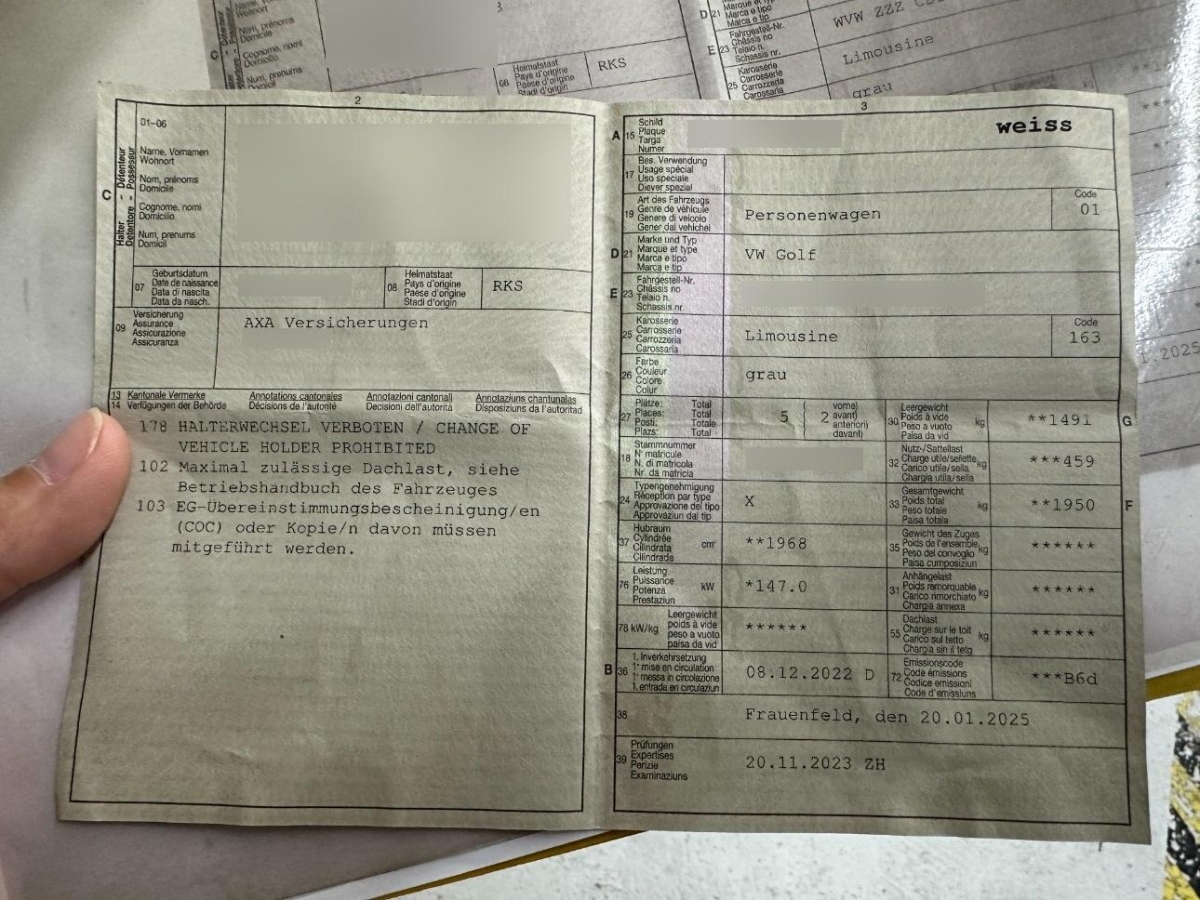 3
Name, Vornamen
Wohnort
Nom, prénoms
Domicile
Cognome, nomi
Domicilio
Num, prenums
08
Heimatstaat
Pays d'origine
Paese d'origine
Stadi d'origin
RKS
D 21
Marca e tipo
Marca e tip
WVW ZZZ
E 23
Fahrgestell-Nr.
Châssis no
Telaio n.
Schassis nr.
Limousine
25
Karosserie
Carrosserie
Carrozzeria
Carossaria
grau
2
C
Halter - Détenteur
Detentore - Possesseur
01-06
Name, Vornamen
Wohnort
Nom, prénoms
Domicile
Cognome, nomi
Domicilio
Num, prenums
Domicil
07
Geburtsdatum
Date de naissance
Data di nascita
Data da nasch.
08
Heimatstaat
Pays d'origine
Paese d'origine
Stadi d'origin
RKS
09
Versicherung
Assurance
Assicurazione
Assicuranza
AXA Versicherungen
13 Kantonale Vermerke Annotations cantonales Annotazioni cantonali Annotaziuns chantunalas
14 Verfügungen der Behörde Décisions de l'autorité Decisioni dell'autorità Disposiziuns da l'autoritad
178 HALTERWECHSEL VERBOTEN / CHANGE OF
VEHICLE HOLDER PROHIBITED
102 Maximal zulässige Dachlast, siehe
Betriebshandbuch des Fahrzeuges
103 EG-Übereinstimmungsbescheinigung/en
(COC) oder Kopie/n davon müssen
mitgeführt werden.
3
A 15
Schild
Plaque
Targa
Numer
weiss
17
Bes. Verwendung
Usage spécial
Uso speciale
Diever spezial
19
Art des Fahrzeugs
Genre de véhicule
Genere di veicolo
Gener dal vehichel
Personenwagen
Code
01
D 21
Marke und Typ
Marque et type
Marca e tipo
Marca e tip
VW Golf
E 23
Fahrgestell-Nr.
Châssis no
Telaio n.
Schassis nr.
25
Karosserie
Carrosserie
Carrozzeria
Carossaria
Limousine
Code
163
26
Farbe
Couleur
Colore
Colur
grau
27
Plätze: Total
Places: Total
Posti: Totale
Plazs: Total
5 { 2
vorne)
avant)
anteriori)
davant)
30
Leergewicht
Poids à vide
Peso a vuoto
Paisa da vid
kg
**1491
G
18
Stammnummer
N° matricule
N. di matricola
Nr. da matricla
32
Nutz-/Sattellast
Charge utile/sellette
Carico utile/sella
Chargia utila/sella
kg
***459
24
Typengenehmigung
Réception par type
Approvazione del tipo
Approvaziun dal tip
X
33
Gesamtgewicht
Poids total
Peso totale
Paisa totala
kg
**1950
F
37
Hubraum
Cylindrée
Cilindrata
Cilindrada
cm³
**1968
35
Gewicht des Zuges
Poids de l'ensemble
Peso del convoglio
Paisa cumposiziun
kg
******
76
Leistung
Puissance
Potenza
Prestaziun
kW
*147.0
31
Anhängelast
Poids remorquable
Carico rimorchiato
Chargia annexa
kg
******
78 kW/kg
Leergewicht
poids à vide
peso a vuoto
paisa da vid
******
55
Dachlast
Charge sur le toit
Carico sul tetto
Chargia sin il tetg
kg
******
B 36
1. Inverkehrsetzung
1re mise en circulation
1a messa in circolazione
1. entrada en circulaziun
08.12.2022 D
72
Emissionscode
Code émissions
Codice emissioni
Code d'emissiuns
***B6d
38
Frauenfeld, den 20.01.2025
39
Prüfungen
Expertises
Perizie
Examinaziuns
20.11.2023 ZH